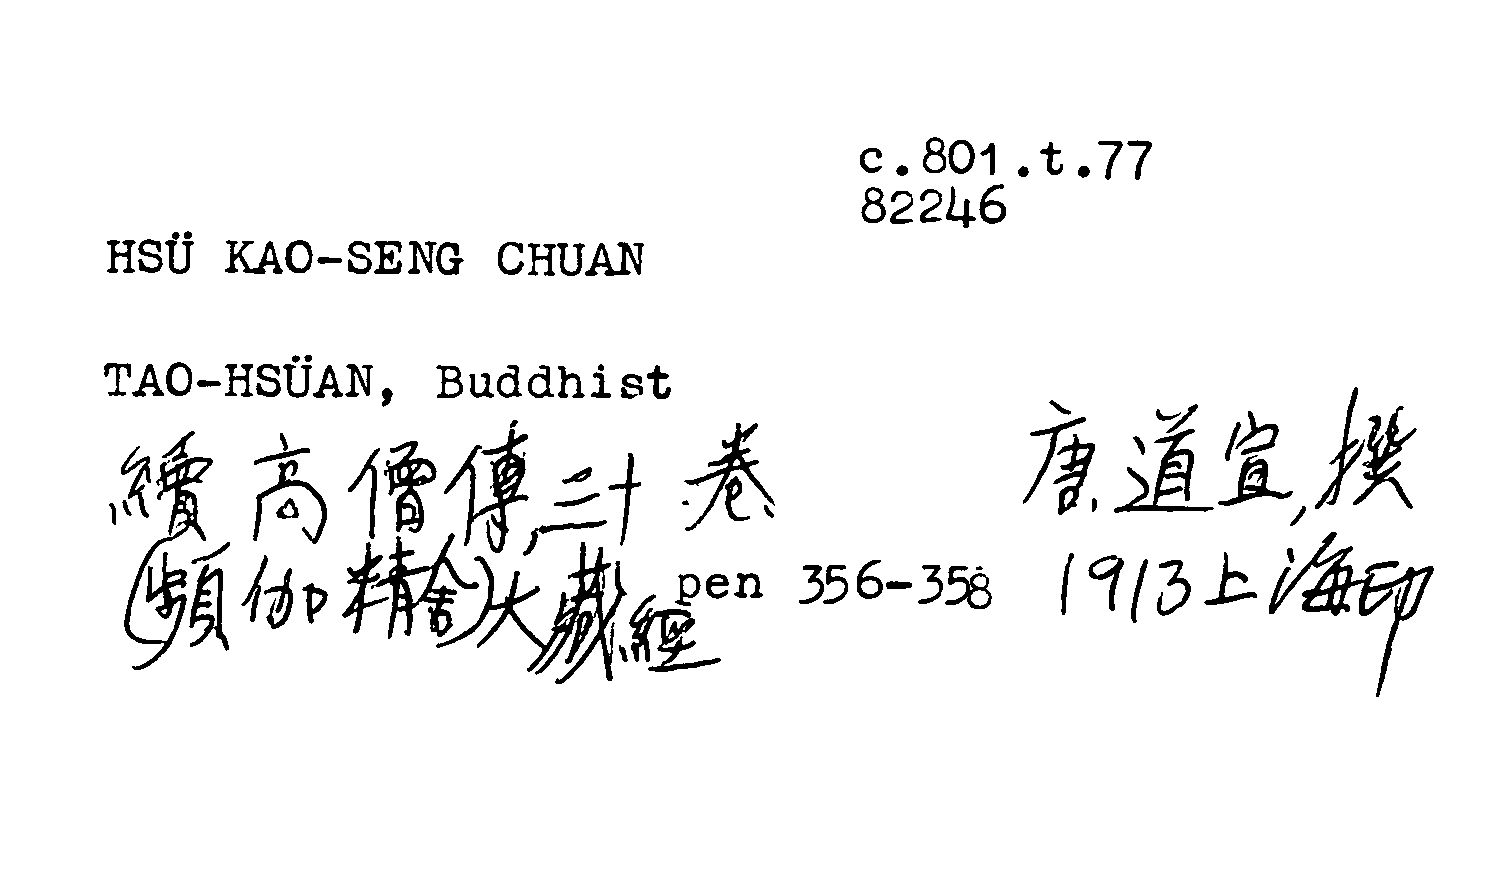 c.801.t.77
82246
HSÜ KAO-SENG CHUAN
TAO-HSÜAN, Buddhist
續高僧傳,三十卷 唐道宣,撰
(頻伽精舍)大藏經 pen 356-358 1913上海印